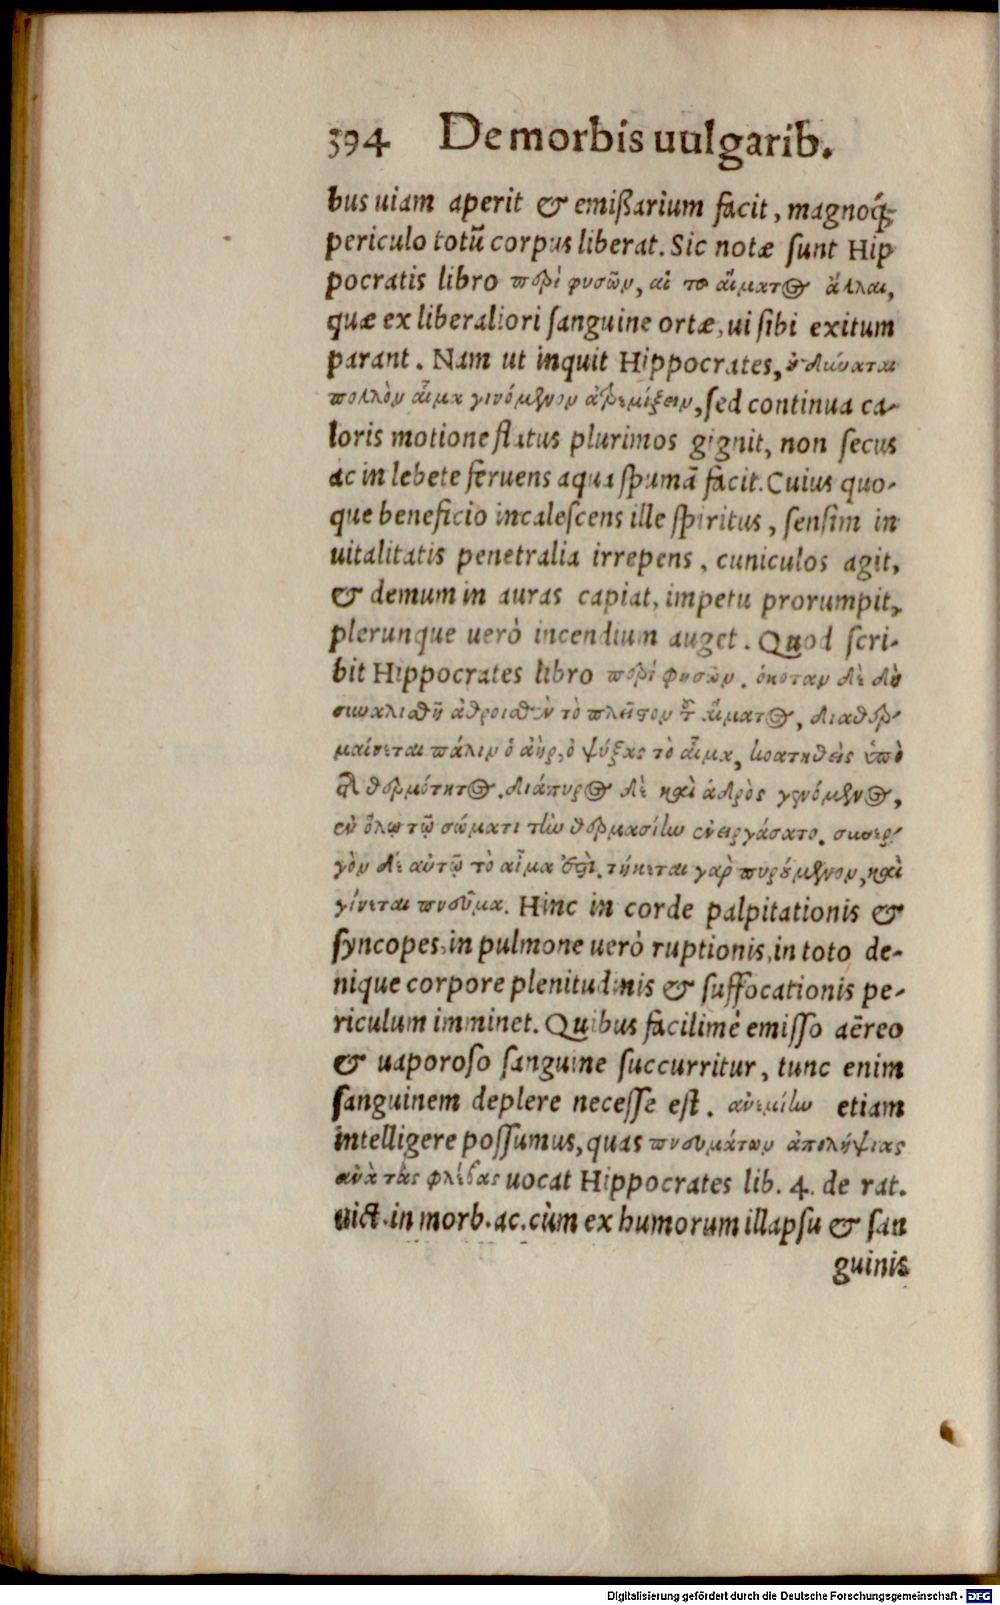 394 De morbis uulgarib.
bus uiam aperit & emißarium facit, magnoq́;
periculo totũ corpus liberat. Sic notæ sunt Hip
pocratis libro περὶ φυσῶν, αἱ το αἵματος ἅλλαι,
quæ ex liberaliori sanguine ortæ, ui sibi exitum
parant. Nam ut inquit Hippocrates, οὐ δύναται
πολλὸν αἷμα γινόμενον ἀτρεμίζειν, sed continua ca-
loris motione flatus plurimos gignit, non secus
ac in lebete feruens aqua spumã facit. Cuius quo-
que beneficio incalescens ille spiritus, sensim in
uitalitatis penetralia irrepens, cuniculos agit,
& demum in auras capiat, impetu prorumpit,
plerunque uerò incendium auget. Quod scri-
bit Hippocrates libro περὶ φυσῶν. ὁκοταν δὲ δὲ
συναλισθῇ ἀθροισθὲν τὸ πλεῖστον τοῦ αἵματος, διαθερ-
μαίνεται πάλιν ὁ ἀὴρ, ὁ ψύξας τὸ αἷμα, κρατηθεὶς ὑπὸ
τῆς θερμότητος. διάπυρος δὲ καὶ ἁδρὸς γενόμενος,
ἐν ὅλῳ τῷ σώματι τὴν θερμασίην ἐνειργάσατο. συνερ-
γὸν δὲ αὐτῷ τὸ αἷμα ἐστὶ. τήκεται γὰρ πυρούμενον, καὶ
γίνεται πνεῦμα. Hinc in corde palpitationis &
syncopes, in pulmone uerò ruptionis, in toto de-
nique corpore plenitudinis & suffocationis pe-
riculum imminet. Quibus facilimè emisso aëreo
& uaporoso sanguine succurritur, tunc enim
sanguinem deplere necesse est. etiam
intelligere possumus, quas πνευμάτων ἀπολήψιας
ἀνὰ τὰς φλέβας uocat Hippocrates lib. 4. de rat.
uict. in morb. ac. cùm ex humorum illapsu & san
guinis
Digitalisierung gefördert durch die Deutsche Forschungsgemeinschaft - DFG